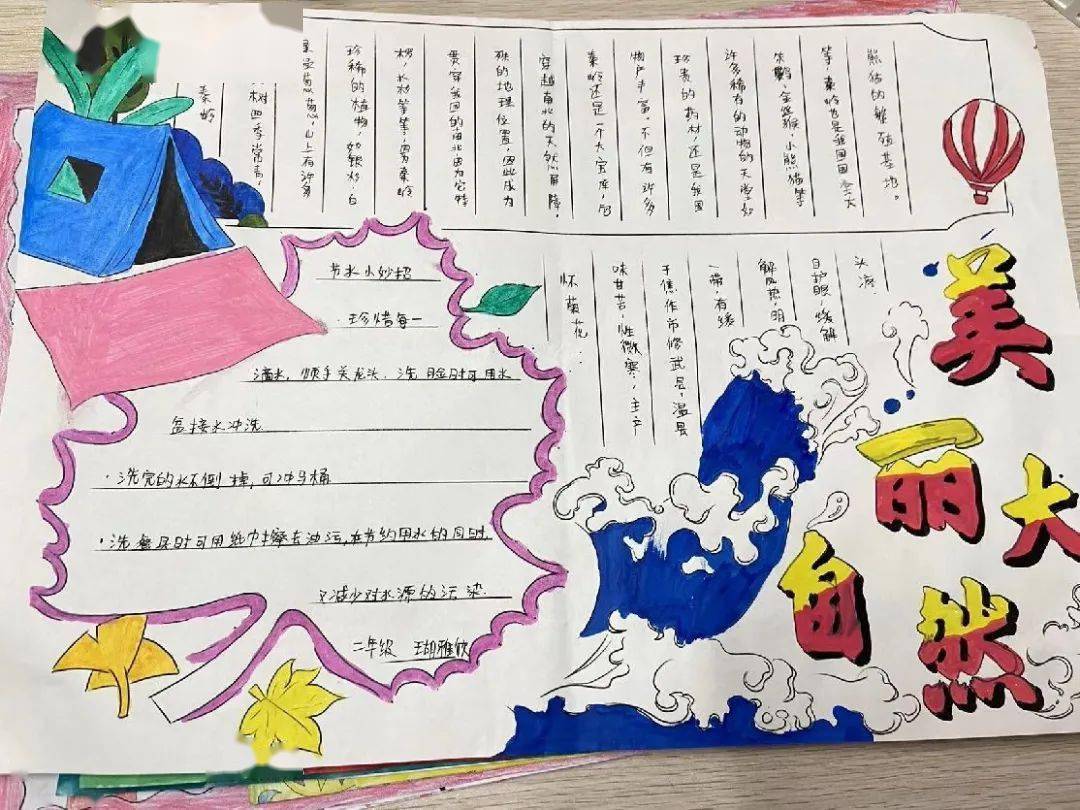 秦岭
树四季常青,
葱葱,山上有许多
珍稀的植物,如银杉,白
等等,秦岭
贯穿我国的南北因为它特
殊的地理位置,因此成为
穿越南北的天然屏障,
秦岭还是一个大宝库,
物产丰富,不但有许多
珍贵的药材,还是我国
许多稀有的动物的天堂如
朱鹮,金丝猴,小熊猫等
等,秦岭也是我国国宝大
熊猫的繁殖基地。
怀菊花:
味甘苦,性微寒,主产
于焦作市修武县,温县
一带,有缓
解风热,明
目护眼,缓解
头疼.
节水小妙招
·珍惜每一
滴水,顺手关龙头.洗脸时可用水
盆接水冲洗
·洗完的水不倒掉,可冲马桶
·洗餐具时可用纸巾擦去油污,在节约用水的同时
又减少对水源的污染.
二年级 雅
美
丽
大
自
然